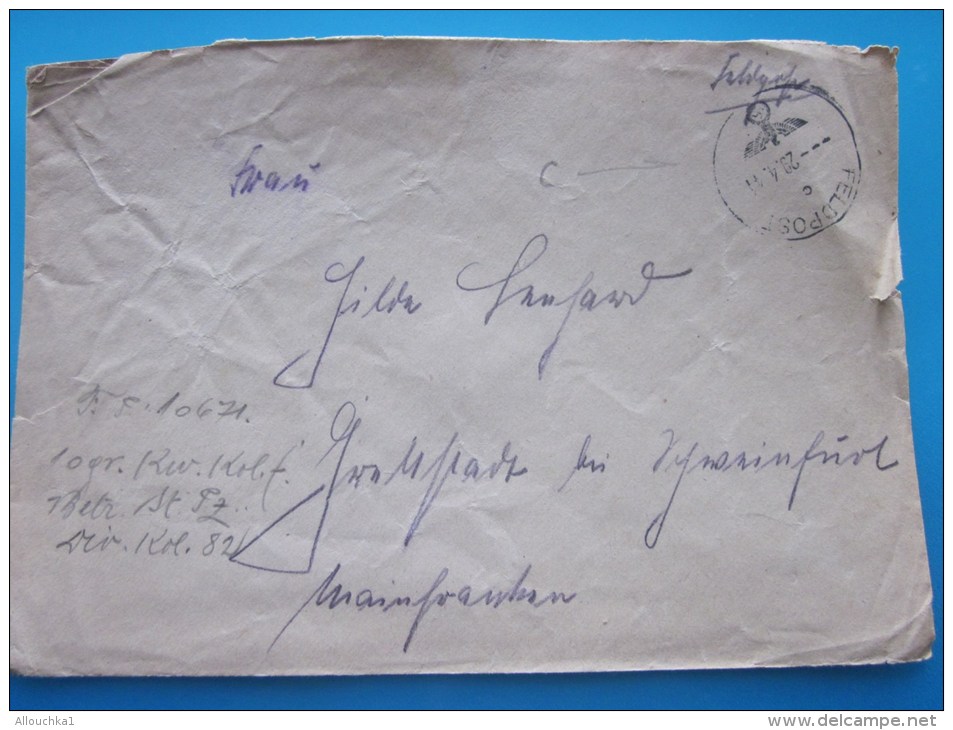 Feldpost
FELDPOST
c
Frau
Hilde Lenhard
Grettstadt bei Schweinfurt
Mainfranken
F. P. 10671.
10 gr. Kw. Kol. f.
Betr. St. Pz.
Div. Kol. 82
Allouchka1
www.delcampe.net